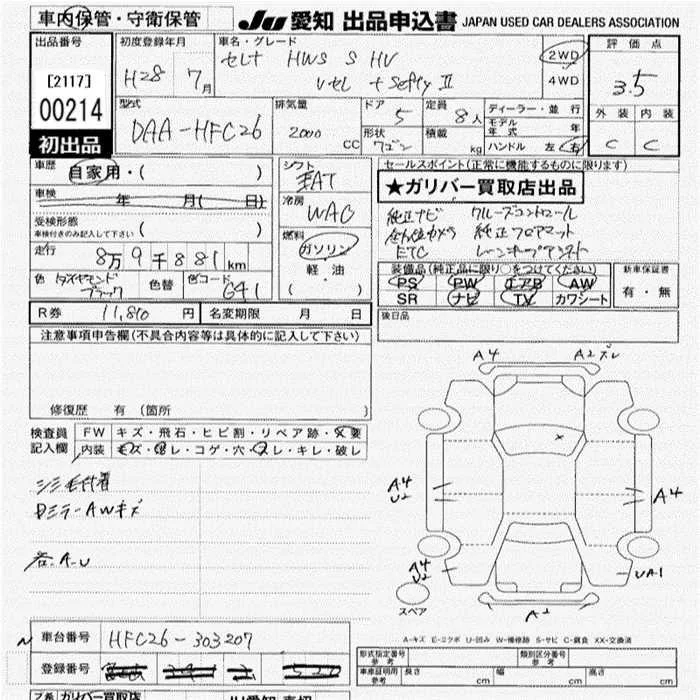 車内保管・守衛保管
JU 愛知 出品申込書 JAPAN USED CAR DEALERS ASSOCIATION
出品番号
[2117]
00214
初出品
初度登録年月
H28 7月
車名・グレード
セレナ HWS S HV
Vセレ +Safty II
2WD
4WD
評価点
3.5
外装 内装
C C
型式
DAA-HFC26
排気量
2000 CC
ドア 5
形状 ワゴン
定員 8人
積載 kg
ディーラー・並行
モデル年式 年
ハンドル 左・右
車歴 自家用・( )
車検 年 月( 日)
受検形態
車検付きのみ記入して下さい ( )
走行 8万9千881km
色 ダイヤモンドブラック
色替
色コード G41
シフト
FAT
冷房
WAC
燃料
ガソリン
軽・油
( )
セールスポイント(正常に機能するものに限ります)
★ガリバー買取店出品
純正ナビ クルーズコントロール
全方位カメラ 純正フロアマット
ETC レーンキープアシスト
装備品(純正品に限り○をつけてください)
PS PW エアB AW
SR ナビ TV カワシート
新車保証書
有・無
後日品
R券 11,810円
名変期限 月 日
注意事項申告欄(不具合内容等は具体的に記入して下さい)
修復歴 有 (箇所 )
検査員
記入欄
FW キズ・飛石・ヒビ割・リペア跡・X要
内装 キズ・汚レ・コゲ・穴・スレ・キレ・破レ
シミ毛付着
DミラーAWキズ
各A-U
A4 A2ズレ
A4
U2
A4
A4
U2
UA1
A2
スペア
A-キズ E-エクボ U-凹み W-補修跡 S-サビ C-腐食 XX-交換済
車台番号 HFC26-303207
登録番号
形式指定番号
参考
類別区分番号
参考
車庫証明用
参考
長さ cm
幅 cm
高さ cm
ガリバー買取店
JU愛知